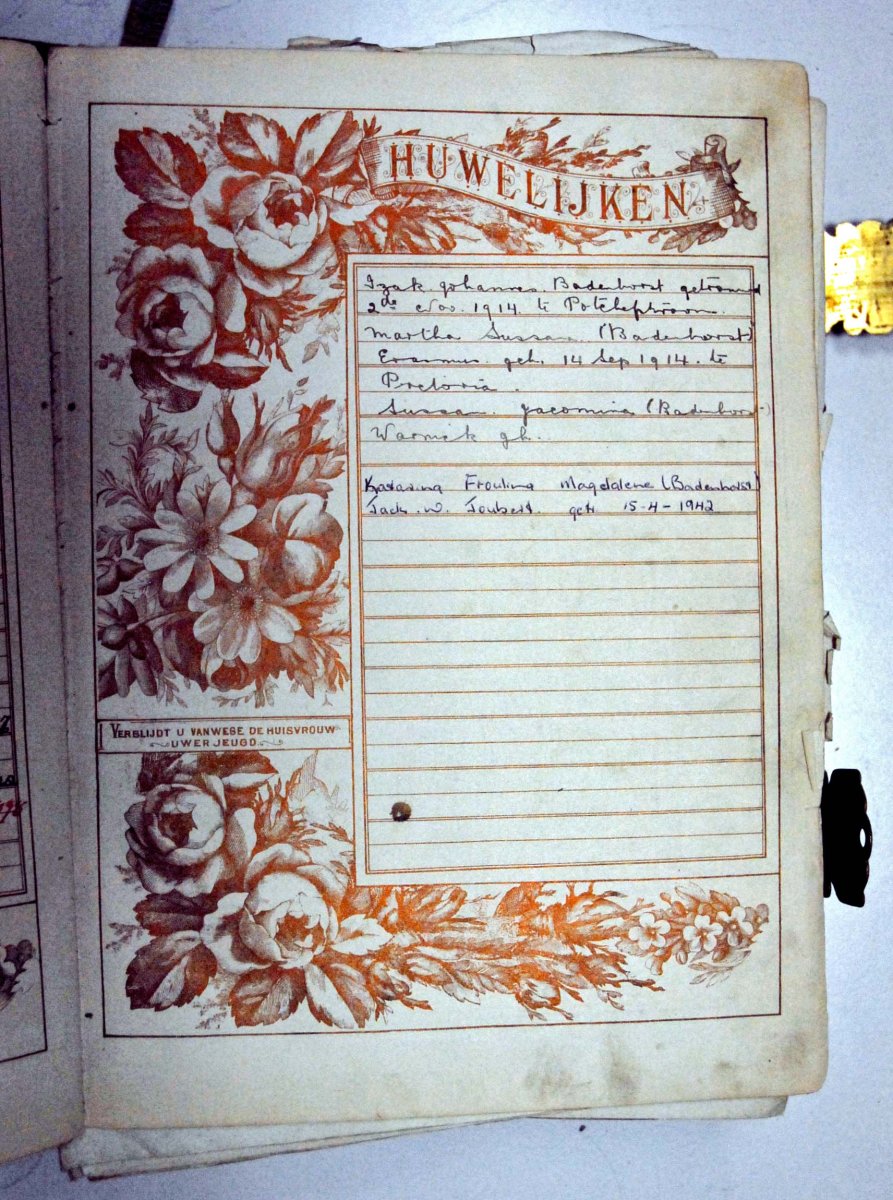 HUWELIJKEN
Izak Johannes Badenhorst getrouwd
2de Nov. 1914 te Potchefstroom.
Martha Sussan (Badenhorst)
Erasmus geh. 14 Sep 1914. te
Pretoria.
Sussan Jacomina (Badenhorst)
Warnick gh.
Magdalene (Badenhorst)
Jack. W. Joubert. getr 15-4-1942
VERBLIJDT U VANWEGE DE HUISVROUW
UWER JEUGD.